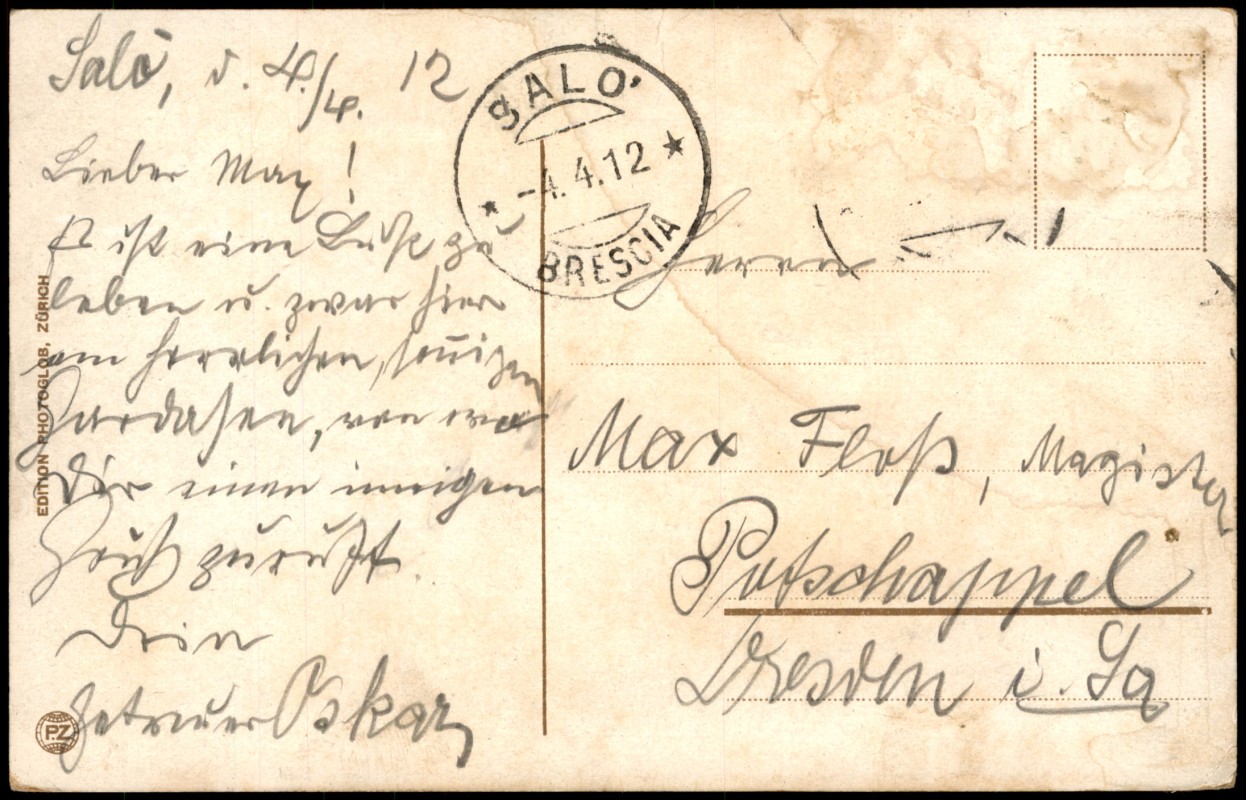 Salò, d. 4./4. 12
Lieber Max!
Es ist eine Lust zu
leben u. zwar hier
am herrlichen, sonnigen
Gardasee, von wo
Dir einen innigen
Gruß zuruft
Dein
getreuer Oskar
EDITION PHOTOGLOB, ZÜRICH
PZ
SALO'
-4.4.12
BRESCIA
Herrn
Max Floß, Magister
Potschappel
Dresden i. Sa